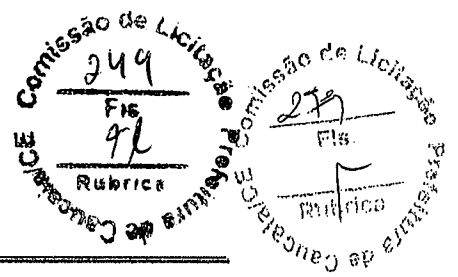 Comissão de Licitação
249
Fls
Rubrica
Prefeitura de Caucaia/CE
Comissão de Licitação
279
Fls.
Rubrica
Prefeitura de Caucaia/CE